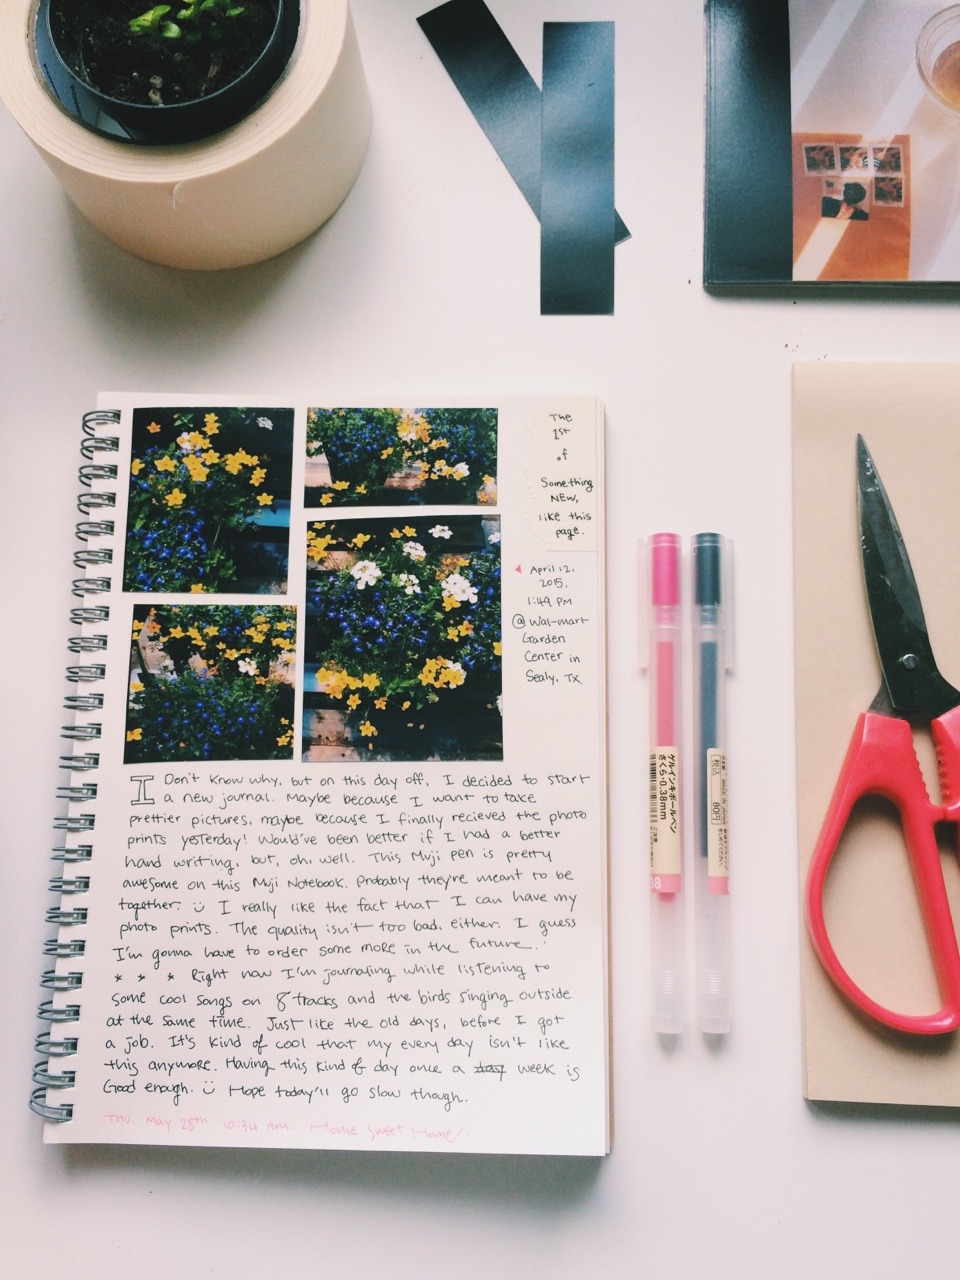 The
1st
of
Something
NEW,
like this
page.
April 12.
2015.
1:49 PM
@ Wal-mart
Garden
Center in
Sealy, TX.
I Don't know why, but on this day off, I decided to start
a new journal. Maybe because I want to take
prettier pictures, maybe because I finally recieved the photo
prints yesterday! Would've been better if I had a better
hand writing, but, oh, well. This Muji pen is pretty
awesome on this Muji Notebook. Probably they're meant to be
together. I really like the fact that I can have my
photo prints. The quality isn't too bad, either. I guess
I'm gonna have to order some more in the future...
* * * Right now I'm journaling while listening to
some cool songs on 8tracks and the birds singing outside
at the same time. Just like the old days, before I got
a job. It's kind of cool that my every day isn't like
this anymore. Having this kind of day once a day week is
Good enough. Hope today'll go slow though.
THU. May 28th 10:34 AM. Home Sweet Home.
ゲルインキボールペン
さくら・0.38mm
38
税込
80円